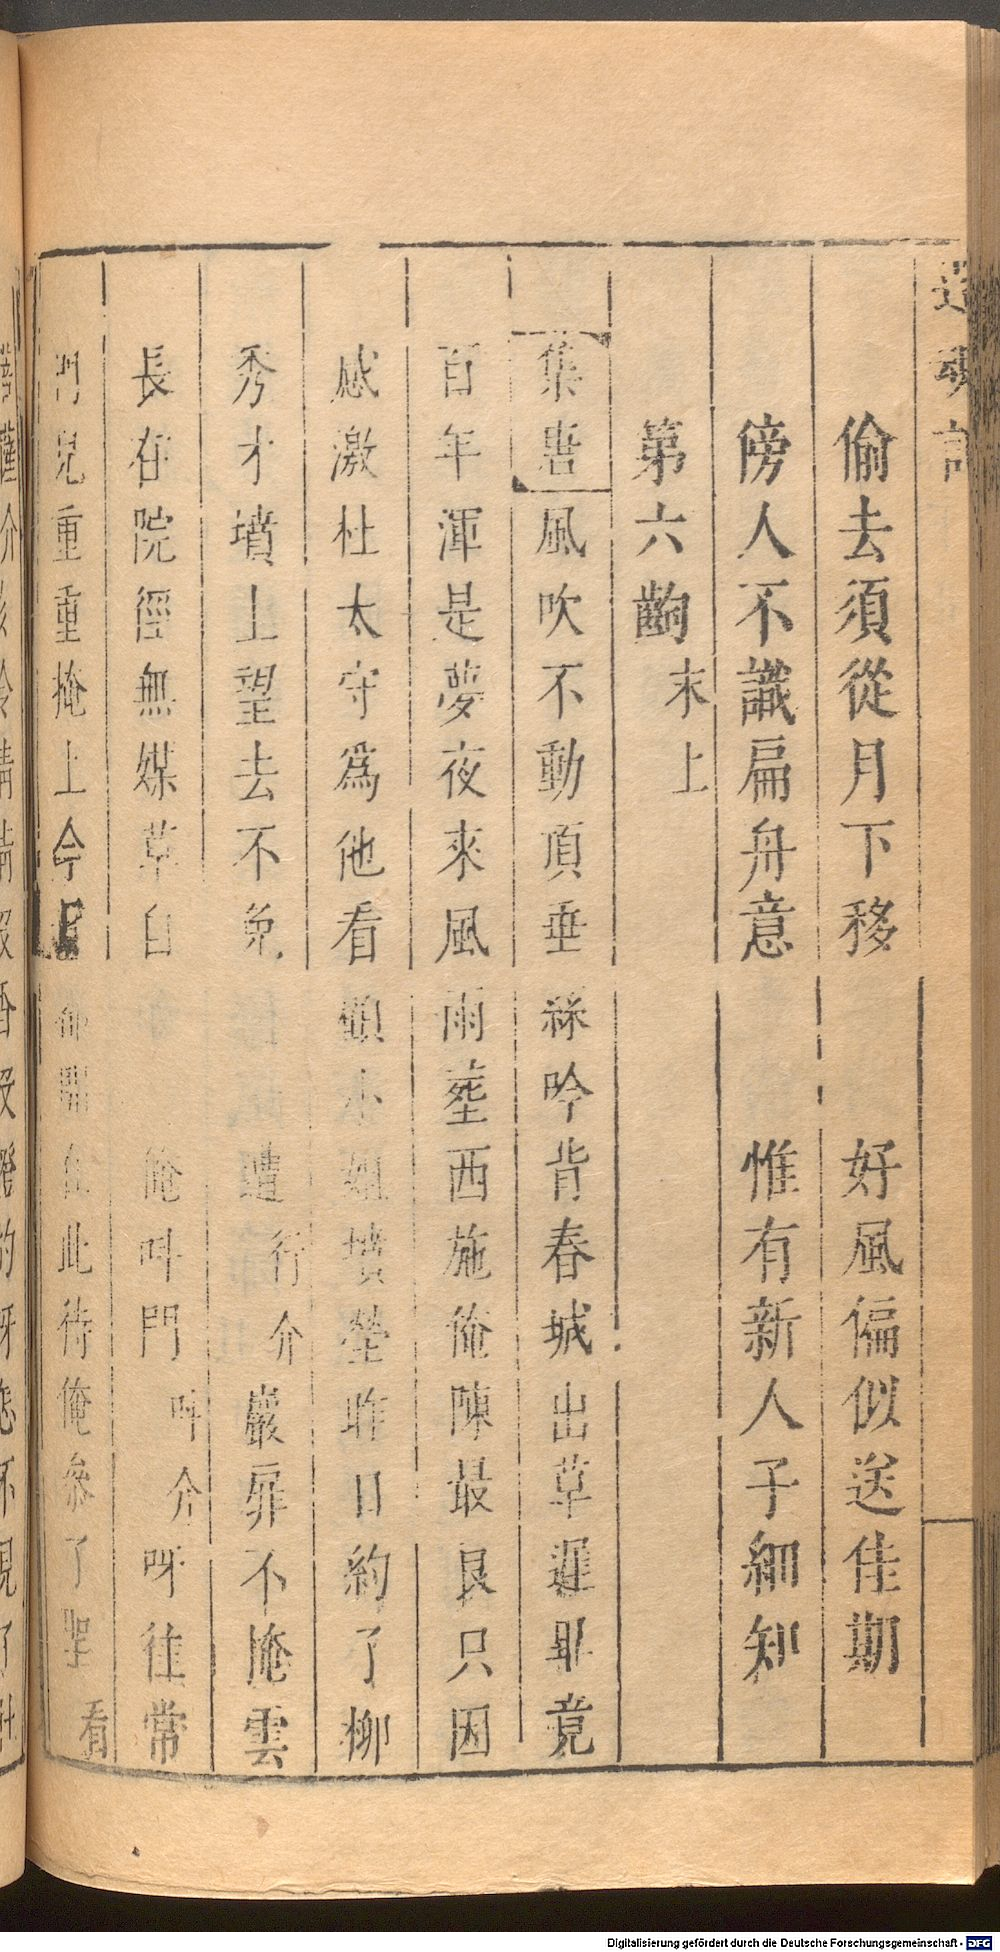 還魂記
偷去須從月下移　好風偏似送佳期
傍人不識扁舟意　惟有新人子細知
第六齣末上
集唐風吹不動頂垂絲吟背春城出草遲畢竟
百年渾是夢夜來風雨葬西施俺陳最良只因
感激杜太守為他看顧小姐墳塋昨日約了柳
秀才墳上望去不免 遭行介巖扉不掩雲
長在院徑無媒草自 俺叫門叫介呀往常
門兒重重掩上今日都開在此待俺參了聖看
Digitalisierung gefördert durch die Deutsche Forschungsgemeinschaft - DFG